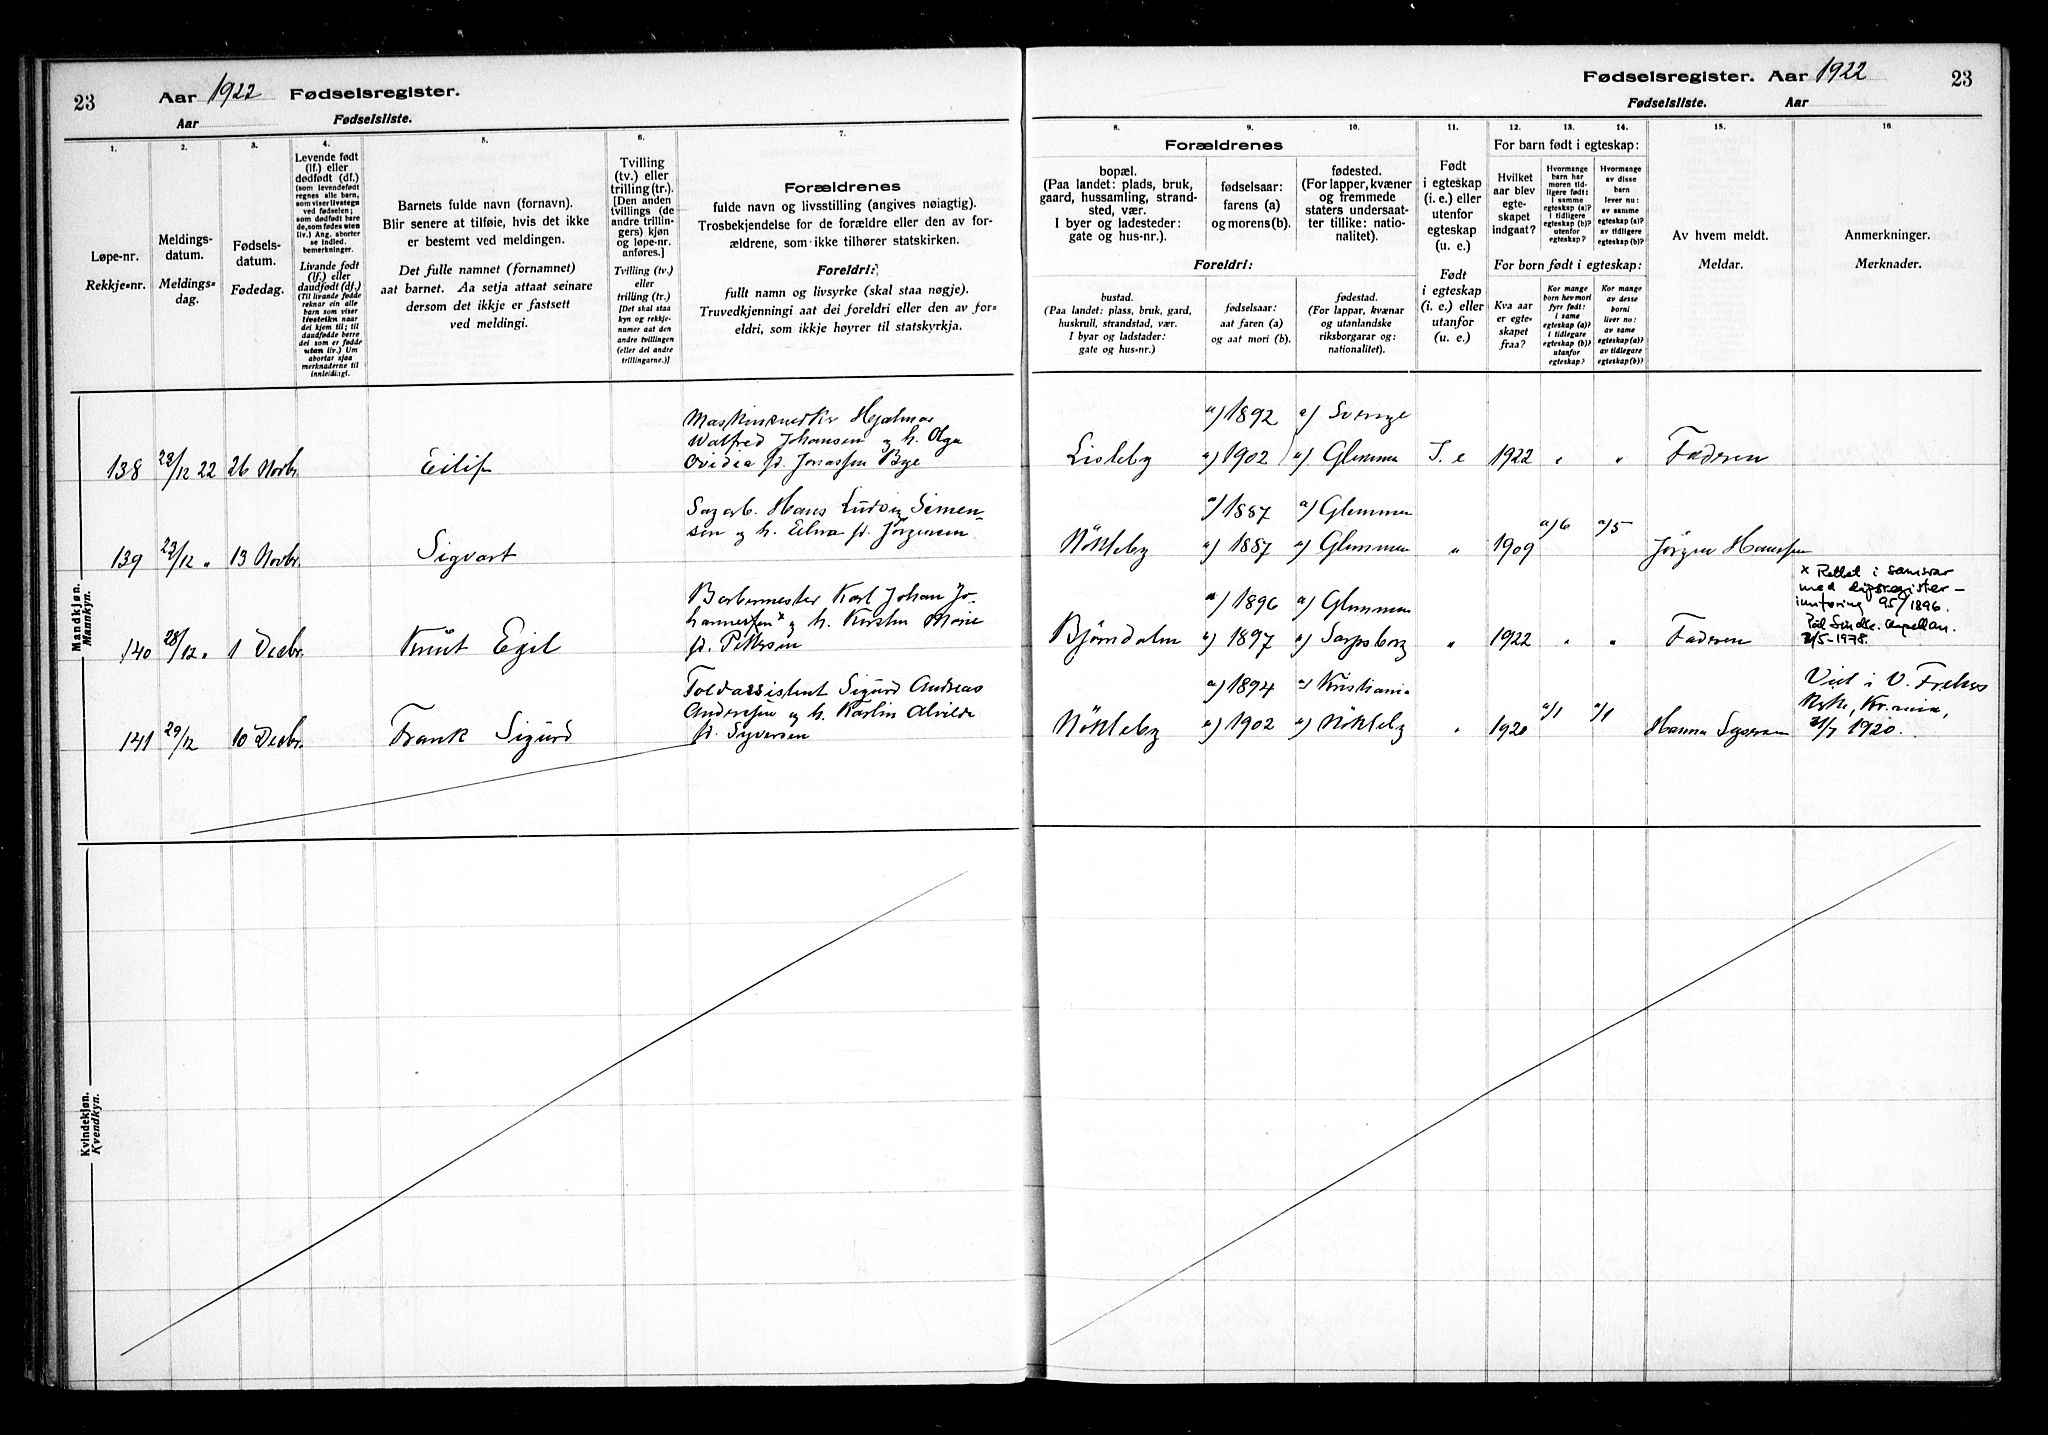 23
Aar 1922 Fødselsregister.
Aar
Fødselsliste.
Fødselsregister. Aar 1922
23
Fødselsliste. Aar
1.
Løpe-nr.
Rekkje-nr.
2.
Meldings-
datum.
Meldings-
dag.
3.
Fødsels-
datum.
Fødedag.
4.
Levende født
(lf.) eller
dødfødt (df.)
(som levendefødt
regnes alle barn,
som viser livstegn
ved fødselen;
som dødfødt bare
de, som fødes uten
liv.) Ang. aborter
se indled.
bemerkninger.
Livande født
(lf.) eller
daudfødt (df.)
(Til livande fødde
reknar ein alle
barn som viser
livsteikn naar
dei kjem til; til
daudfødde berre
dei som er fødde
utan liv.) Um
abortar sjaa
merknaderne til
innleidingi.
5.
Barnets fulde navn (fornavn).
Blir senere at tilføie, hvis det ikke
er bestemt ved meldingen.
Det fulle namnet (fornamnet)
aat barnet. Aa setja attaat seinare
dersom det ikkje er fastsett
ved meldingi.
6.
Tvilling
(tv.) eller
trilling (tr.).
[Den anden
tvillings (de
andre trillin-
gers) kjøn
og løpe-nr.
anføres.]
Tvilling (tv.)
eller
trilling (tr.)
[Det skal staa
kyn og rekkje-
numer aat den
andre tvillingen
(eller dei andre
trillingarne.)]
7.
Forældrenes
fulde navn og livsstilling (angives nøiagtig).
Trosbekjendelse for de forældre eller den av for-
ældrene, som ikke tilhører statskirken.
Foreldri:
fullt namn og livsyrke (skal staa nøgje).
Truvedkjenningi aat dei foreldri eller den av for-
eldri, som ikkje høyrer til statskyrkja.
Forældrenes
8.
bopæl.
(Paa landet: plads, bruk,
gaard, hussamling, strand-
sted, vær.
I byer og ladesteder:
gate og hus-nr.).
9.
fødselsaar:
farens (a)
og morens (b).
10.
fødested.
(For lapper, kvæner
og fremmede
staters undersaat-
ter tillike: natio-
nalitet).
Foreldri:
bustad.
(Paa landet: plass, bruk, gard,
huskrull, strandstad, vær.
I byar og ladstader:
gate og hus-nr.)
fødselsaar:
aat faren (a)
og aat mori (b).
fødestad.
(For lappar, kvænar
og utanlandske
riksborgarar og:
nationalitet).
11.
Født
i egteskap
(i. e.) eller
utenfor
egteskap
(u. e.)
Født
i egteskap
(i. e.) eller
utanfor
(u. e.)
For barn født i egteskap:
12.
Hvilket
aar blev
egte-
skapet
indgaat?
13.
Hvormange
barn har
moren tid-
ligere født:
i samme
egteskap (a)?
i tidligere
egteskap (b)?
utenfor
egteskap?
14.
Hvormange
av disse
barn
lever nu:
av samme
egteskap (a)?
av tidligere
egteskap (b)?
For born født i egteskap:
Kva aar
er egte-
skapet
fraa?
Kor mange
born hev mori
fyrr født:
i same
egteskap (a)?
i tidlegare
egteskap (b)?
utanfor
egteskap?
Kor mange
av desse
borni
liver no:
av same
egteskap (a)?
av tidlegare
egteskap (b)?
15.
Av hvem meldt.
Meldar.
16.
Anmerkninger.
Merknader.
Mandkjøn.
Mannkyn.
Maskinsnedker Hjalmar
Walfred Johansen og h. Olga
Ovidia fd. Jonassen Bye
138 23/12 22 26 Novbr. Eilif
a) 1892 a) Sverige
Lisleby b) 1902 b) Glemmen I. e 1922 " " Faderen
Sagarb. Hans Ludvig Simen-
sen og h. Elna fd. Jörgensen
139 23/12 " 13 Novbr. Sigvart
a) 1887 a) Glemmen
Nökleby b) 1887 b) Glemmen " 1909 a/6 a/5 Jörgen Hanssen
Barbermester Karl Johan Jo-
hannessen x og h. Kirsten Marie
fd. Pettersen
140 28/12 " 1 Decbr. Knut Egil
a) 1896 a) Glemmen
Björndalen b) 1897 b) Sarpsborg " 1922 " " Faderen
x Rettet i samsvar
med dåpsregister-
innføring 95/1896.
2/5-1978.
Toldassistent Sigurd Andreas
Andersen og h. Karlin Alvilde
fd. Syversen
141 29/12 10 Decbr. Frank Sigurd
a) 1894 a) Kristiania
Nökleby b) 1902 b) Nökleby " 1920 a/1 a/1 Hanna Syversen
Viet i V. Frikes
Krke, Kr.ania,
31/7 1920.
Kvindekjøn.
Kvendkyn.